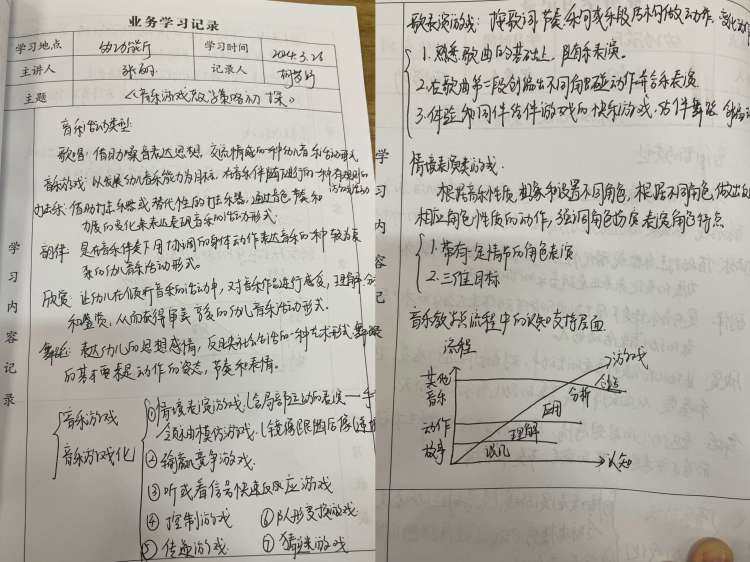 业务学习记录
学习地点 多功能厅 学习时间 2024.3.26
主讲人 记录人
主题 《音乐游戏教学策略初探》
学习内容记录
音乐活动类型:
歌唱:借助嗓音表达思想、交流情感的一种幼儿音乐活动形式
音乐游戏:以发展幼儿音乐能力为目标,在音乐伴随下进行的一种有规则的
游戏活动
打击乐:借助打击乐器或替代性的打击乐器,通过音色、节奏和
力度的变化来表达表现音乐的活动形式.
韵律:是在音乐伴奏下用协调的身体动作表达音乐的一种较为复
杂的幼儿音乐活动形式。
欣赏:让幼儿在倾听音乐的活动中,对音乐作品进行感受,理解
和鉴赏,从而获得审美享受的幼儿音乐活动形式.
舞蹈:表达幼儿的思想感情,反映社会生活的一种艺术形式,舞蹈
的基本要素是动作的姿态,节奏和表情。
音乐游戏
音乐游戏化
①情境表演游戏.(含局部互动的表演—手
领袖模仿游戏.(镜像
②输赢竞争游戏.
③听或看信号快速反应游戏
④控制游戏 ⑥队形变换游戏
⑤传递游戏 ⑦猜谜游戏
歌表演游戏:按歌词、节奏、乐句或乐段的不同做动作,变化
1.熟悉歌曲的基础上,且有表演。
2.在歌曲第二段创编出不同的碰动作并合乐表演
3.体验和同伴合作游戏的快乐游戏.
学习内容记
情境表演类游戏:
根据音乐性质,想象和设置不同角色,根据不同角色,做出
相应角色性质的动作,强调角色扮演,表演角色特点
1.带有一定情节的角色表演
2.三维目标
音乐教学流程中的认知支持层面
流程
游戏
其他
音乐 创造
分析
应用
动作
理解
故事 识记
认知